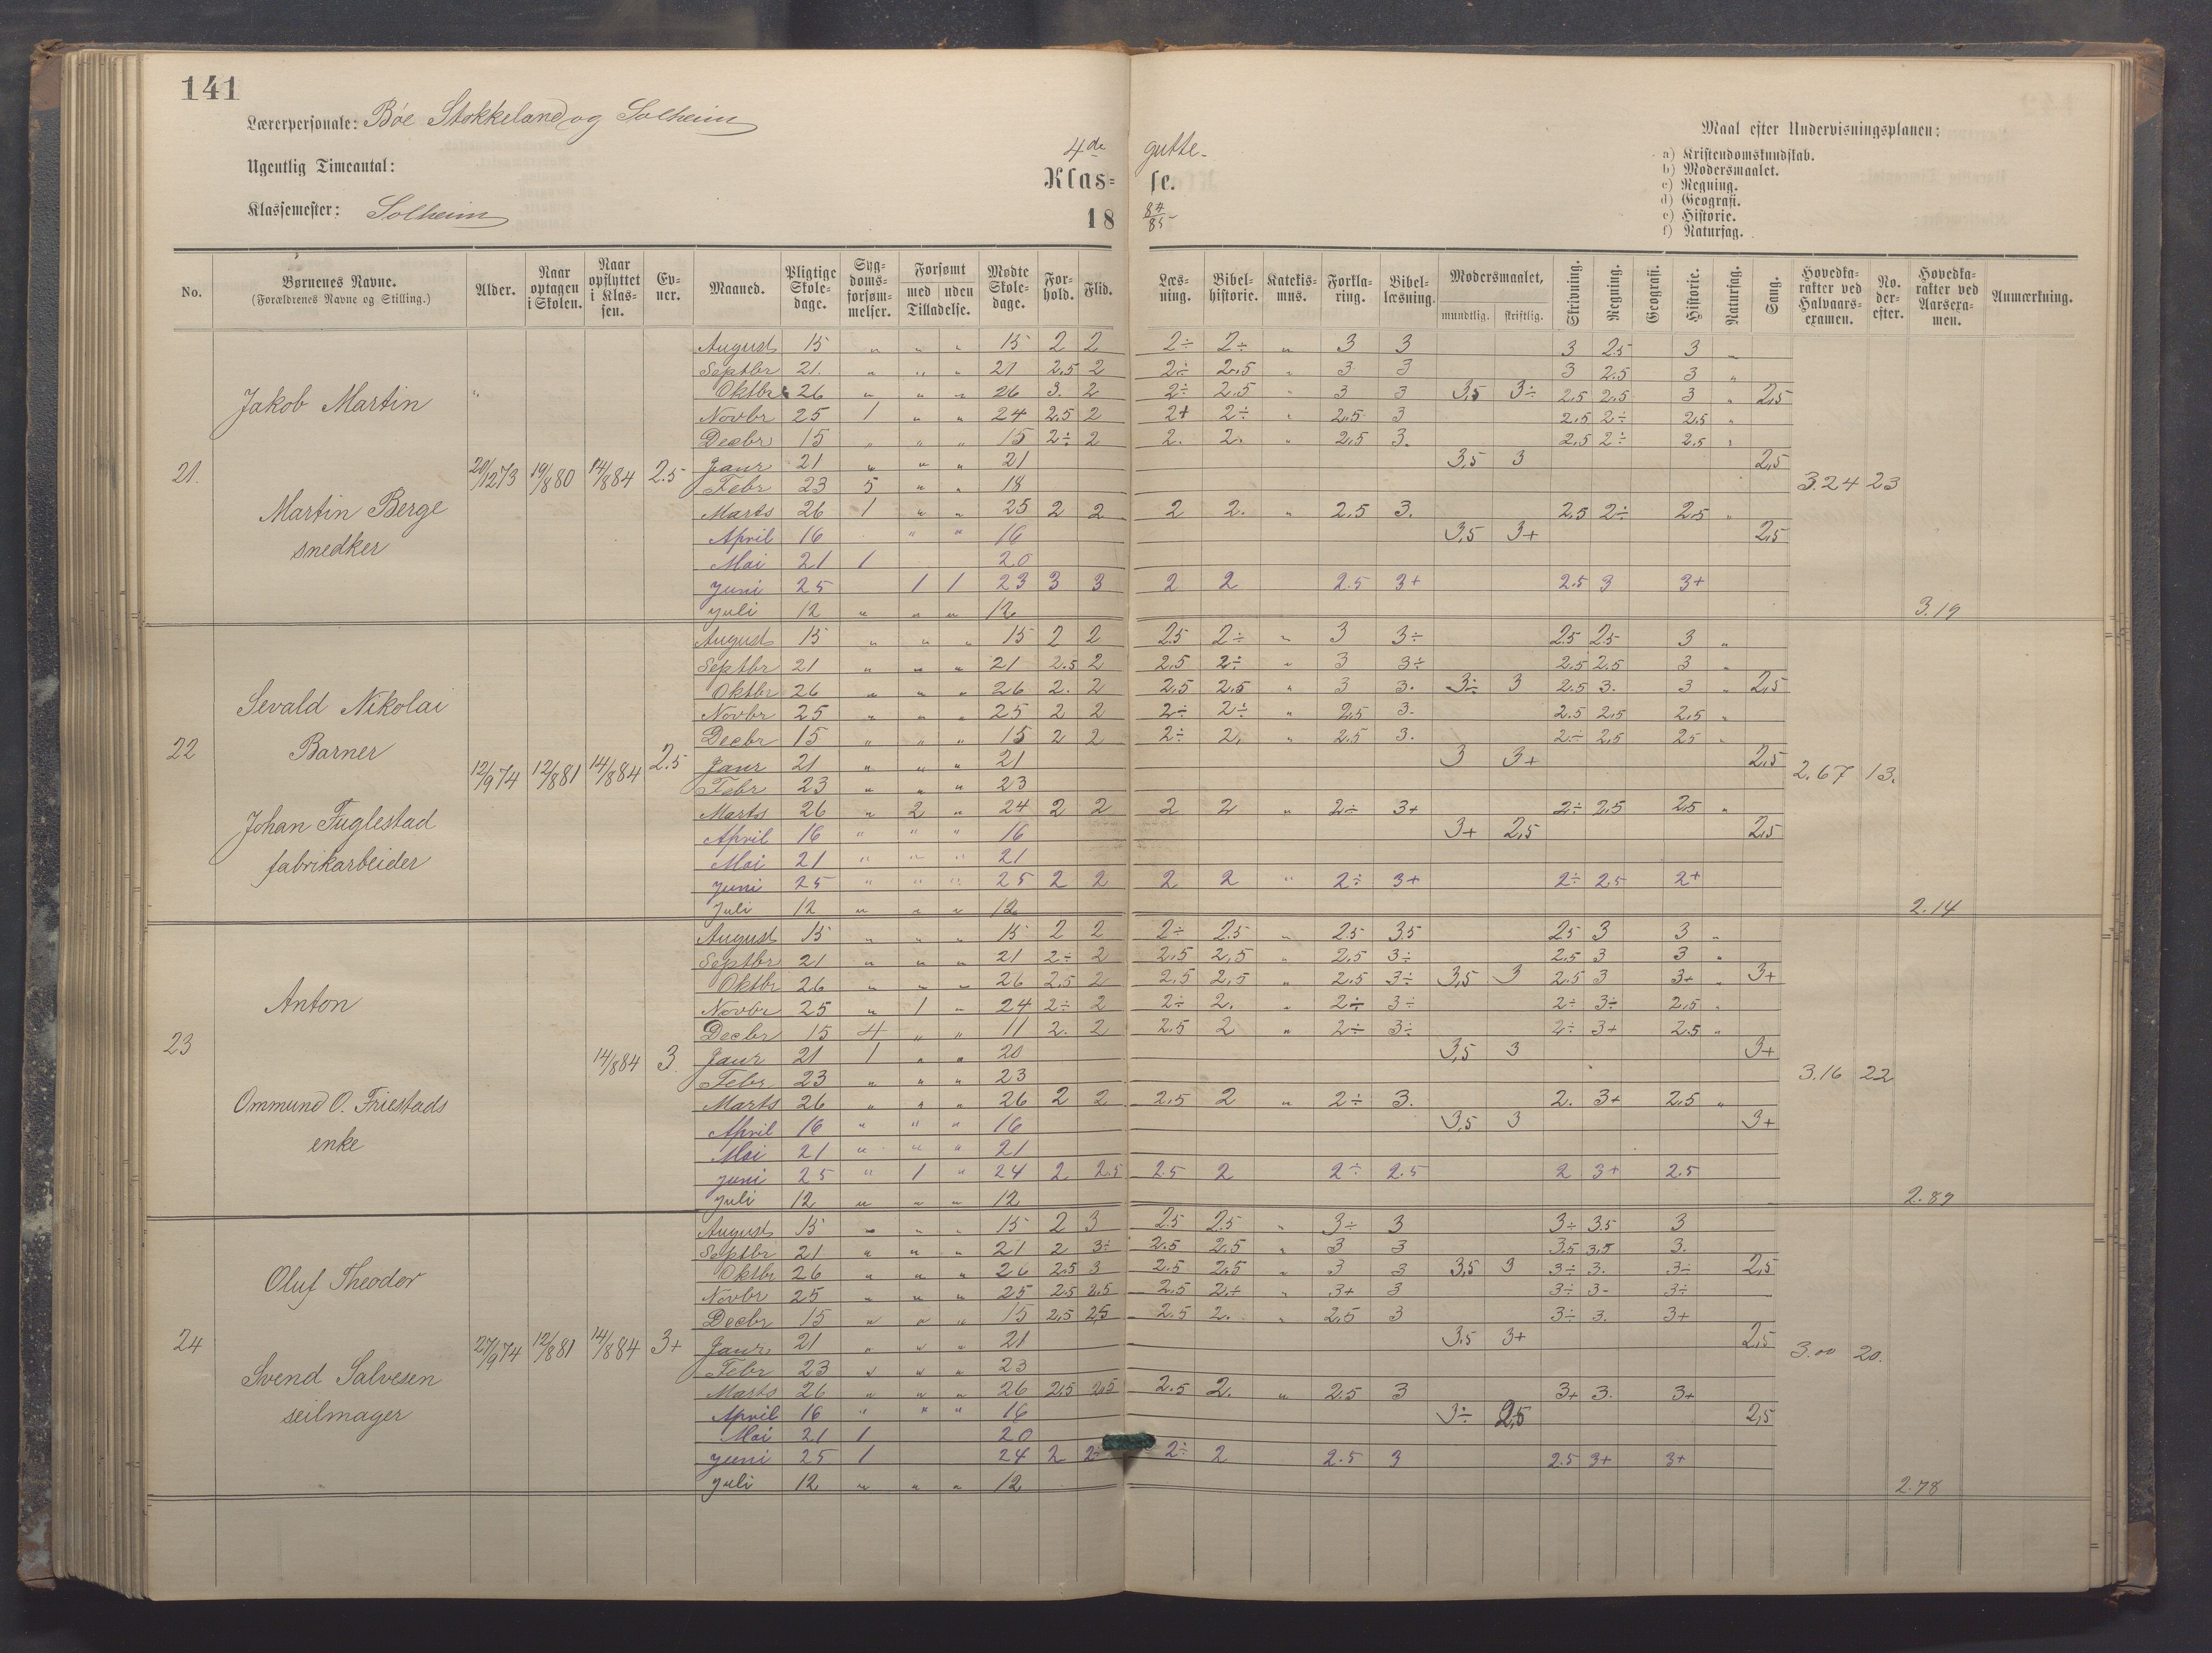 141
Lærerpersonale: Bøe Stokkeland og Solheim
Ugentlig Timeantal:
Klassemester: Solheim
4de gutte-
Klas- se.
18 84/85
Maal efter Undervisningsplanen:
a) Kristendomskundskab.
b) Modersmaalet.
c) Regning.
d) Geografi.
e) Historie.
f) Naturfag.
No. | Børnenes Navne. (Forældrenes Navne og Stilling.) | Alder. | Naar optagen i Skolen. | Naar opflyttet i Klassen. | Evner. | Maaned. | Pligtige Skoledage. | Sygdomsforsømmelser. | Forsømt med uden Tilladelse. | Mødte Skoledage. | Forhold. | Flid. | Læsning. | Bibelhistorie. | Katekismus. | Forklaring. | Bibellæsning. | Modersmaalet, mundtlig. skriftlig. | Skrivning. | Regning. | Geografi. | Historie. | Naturfag. | Sang. | Hovedkarakter ved Halvaarsexamen. | No. derefter. | Hovedkarakter ved Aarsexamen. | Anmærkning.
21. Jakob Martin
Martin Berge
snedker
20/12 73 19/8 80 14/8 84 2.5
August 15 " " " 15 2 2 2÷ 2÷ " 3 3 3 2.5 3 "
Septbr 21 " " " 21 2.5 2 2÷ 2.5 " 3 3 3 2.5 3 "
Oktbr 26 " " " 26 3. 2 2÷ 2.5 " 3 3 3,5 3÷ 2.5 2.5 3 " 2,5
Novbr 25 1 " " 24 2.5 2 2+ 2÷ " 2.5 3 2.5 2÷ 2.5 "
Decbr 15 " " " 15 2÷ 2 2. 2. " 2.5 3. 2.5 2÷ 2.5 "
Janr 21 " " " 21 3,5 3 2,5
Febr 23 5 " " 18 3.24 23
Marts 26 1 " " 25 2 2 2 2. " 2.5 3. 2.5 2÷ 2.5 "
April 16 " " 16 3,5 3+ 2,5
Mai 21 1 20
Juni 25 1 1 23 3 3 2 2 2.5 3+ 2.5 3 3+
Juli 12 " " " 12 3.19
22 Sevald Nikolai
Barner
Johan Fuglestad
fabrikarbeider
12/9 74 12/8 81 14/8 84 2.5
August 15 " " " 15 2 2 2.5 2÷ " 3 3÷ 2.5 2.5 3 "
Septbr 21 " " " 21 2.5 2 2.5 2÷ " 3 3÷ 2.5 2.5 3 "
Oktbr 26 " " " 26 2. 2 2.5 2.5 " 3 3. 3÷ 3 2.5 3. 3 " 2,5
Novbr 25 " " " 25 2 2 2÷ 2÷ " 2.5 3. 2.5 2.5 2.5 "
Decbr 15 " " " 15 2 2 2÷ 2. " 2.5 3. 2÷ 2.5 2.5 "
Janr 21 " " " 21 3 3+ 2,5
Febr 23 " " " 23 2.67 13.
Marts 26 " 2 " 24 2 2 2 2 " 2÷ 3+ 2÷ 2.5 2.5 "
April 16 " " " 16 3+ 2,5 2,5
Mai 21 " " " 21
Juni 25 " " " 25 2 2 2 2 " 2÷ 3+ 2÷ 2.5 2+
Juli 12 " " " 12 2.14
23 Anton
Ommund O. Friestads
enke
14/8 84 3.
August 15 " " " 15 2 2 2÷ 2.5 " 2.5 3.5 2.5 3 3 "
Septbr 21 " " " 21 2÷ 2 2.5 2,5 " 2.5 3÷ 2.5 3 3 "
Oktbr 26 " " " 26 2,5 2 2.5 2,5 " 2.5 3÷ 3,5 3 2.5 3 3+ " 3+
Novbr 25 " 1 " 24 2÷ 2 2÷ 2. " 2÷ 3÷ 2÷ 3÷ 2,5 "
Decbr 15 4 " " 11 2. 2 2.5 2 " 2÷ 3÷ 2÷ 3+ 2.5 "
Janr 21 1 " " 20 3,5 3 3+
Febr 23 " " " 23 3.16 22
Marts 26 " " " 26 2 2 2,5 2 " 2÷ 3. 2. 3+ 2,5 "
April 16 " " " 16 3,5 3 3+
Mai 21 " " " 21
Juni 25 " 1 " 24 2 2.5 2.5 2 2÷ 2.5 2 3+ 2.5
Juli 12 " " " 12 2.89
24 Oluf Theodor
Svend Salvesen
seilmager
27/9 74 12/8 81 14/8 84 3+
August 15 " " " 15 2 3 2.5 2.5 " 3÷ 3 3÷ 3.5 3
Septbr 21 " " " 21 2 3÷ 2.5 2.5 " 3 3 3.5 3.5 3.
Oktbr 26 " " " 26 2.5 3 2.5 2.5 " 3 3 3,5 3 3÷ 3. 3÷ 2,5
Novbr 25 " " " 25 2.5 2.5 2.5 2÷ " 3+ 3 3÷ 3- 3÷
Decbr 15 " " " 15 2,5 2,5 2.5 2. " 2.5 3 3÷ 3. 3+
Janr 21 " " " 21 3.5 3+ 2,5
Febr 23 " " " 23 3.00 20.
Marts 26 " " " 26 2,5 2,5 2.5 2. " 2.5 3 3+ 3. 3+
April 16 " " " 16 3÷ 2,5 2,5
Mai 21 1 20
Juni 25 1 24 2 2÷ 2÷ 2 2.5 3 2.5 3+ 3+
Juli 12 " " " 12 2.78